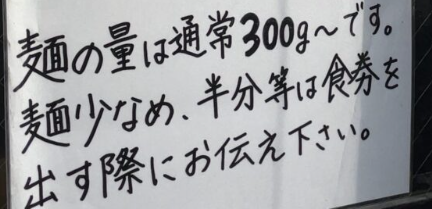 麺の量は通常300g〜です。
麺少なめ、半分等は食券を
出す際にお伝え下さい。